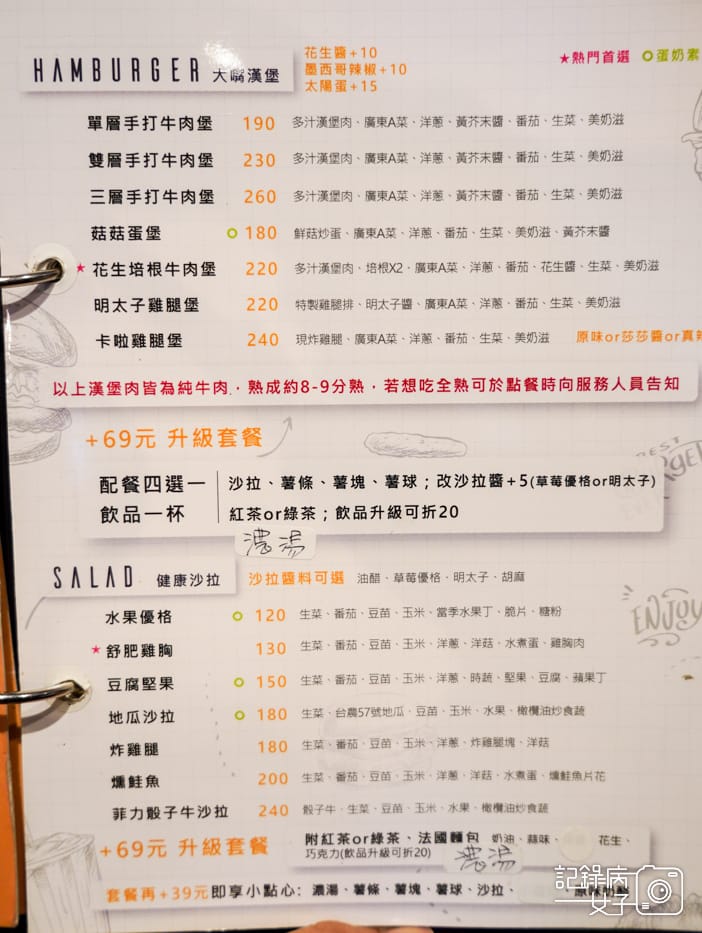 HAMBURGER 大嘴漢堡
花生醬+10
墨西哥辣椒+10
太陽蛋+15
★熱門首選 蛋奶素
單層手打牛肉堡 190 多汁漢堡肉、廣東A菜、洋蔥、黃芥末醬、番茄、生菜、美奶滋
雙層手打牛肉堡 230 多汁漢堡肉、廣東A菜、洋蔥、黃芥末醬、番茄、生菜、美奶滋
三層手打牛肉堡 260 多汁漢堡肉、廣東A菜、洋蔥、黃芥末醬、番茄、生菜、美奶滋
菇菇蛋堡 180 鮮菇炒蛋、廣東A菜、洋蔥、番茄、生菜、美奶滋、黃芥末醬
★花生培根牛肉堡 220 多汁漢堡肉、培根X2、廣東A菜、洋蔥、番茄、花生醬、生菜、美奶滋
明太子雞腿堡 220 特製雞腿排、明太子醬、廣東A菜、洋蔥、番茄、生菜、美奶滋
卡啦雞腿堡 240 現炸雞腿、廣東A菜、洋蔥、番茄、生菜、美奶滋 原味or莎莎醬or真辣
以上漢堡肉皆為純牛肉，熟成約8-9分熟，若想吃全熟可於點餐時向服務人員告知
+69元 升級套餐
BEST
配餐四選一 沙拉、薯條、薯塊、薯球；改沙拉醬+5(草莓優格or明太子)
飲品一杯 紅茶or綠茶；飲品升級可折20
濃湯
SALAD 健康沙拉 沙拉醬料可選 油醋、草莓優格、明太子、胡麻
ENJOY
水果優格 120 生菜、番茄、豆苗、玉米、當季水果丁、脆片、糖粉
★舒肥雞胸 130 生菜、番茄、豆苗、玉米、洋蔥、洋菇、水煮蛋、雞胸肉
豆腐堅果 150 生菜、番茄、豆苗、玉米、洋蔥、時蔬、堅果、豆腐、蘋果丁
地瓜沙拉 180 生菜、台農57號地瓜、豆苗、玉米、水果、橄欖油炒食蔬
炸雞腿 180 生菜、番茄、豆苗、玉米、洋蔥、炸雞腿塊、洋菇
燻鮭魚 200 生菜、番茄、豆苗、玉米、洋蔥、洋菇、水煮蛋、燻鮭魚片花
菲力骰子牛沙拉 240 骰子牛、生菜、豆苗、玉米、水果、橄欖油炒食蔬
+69元 升級套餐 附紅茶or綠茶、法國麵包 奶油、蒜味、花生、
巧克力(飲品升級可折20)
濃湯
套餐再+39元即享小點心：濃湯、薯條、薯塊、薯球、沙拉、
記錄病
女子